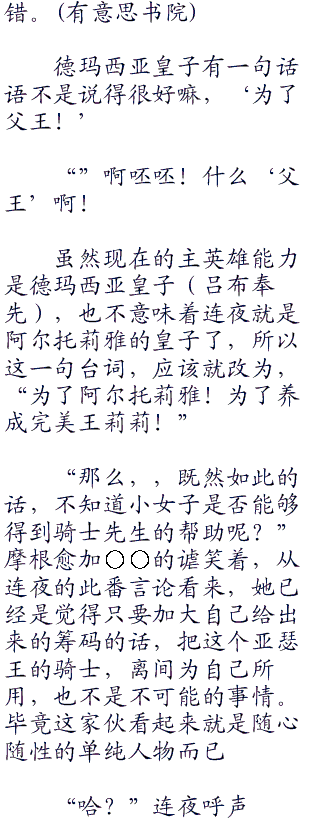 错。(有意思书院)
德玛西亚皇子有一句话
语不是说得很好嘛，‘为了
父王！’
“”啊呸呸！什么‘父
王’啊！
虽然现在的主英雄能力
是德玛西亚皇子（吕布奉
先），也不意味着连夜就是
阿尔托莉雅的皇子了，所以
这一句台词，应该就改为，
“为了阿尔托莉雅！为了养
成完美王莉莉！”
“那么，，既然如此的
话，不知道小女子是否能够
得到骑士先生的帮助呢？”
摩根愈加○○的谑笑着，从
连夜的此番言论看来，她已
经是觉得只要加大自己给出
来的筹码的话，把这个亚瑟
王的骑士，离间为自己所
用，也不是不可能的事情。
毕竟这家伙看起来就是随心
随性的单纯人物而已
“哈？”连夜呼声